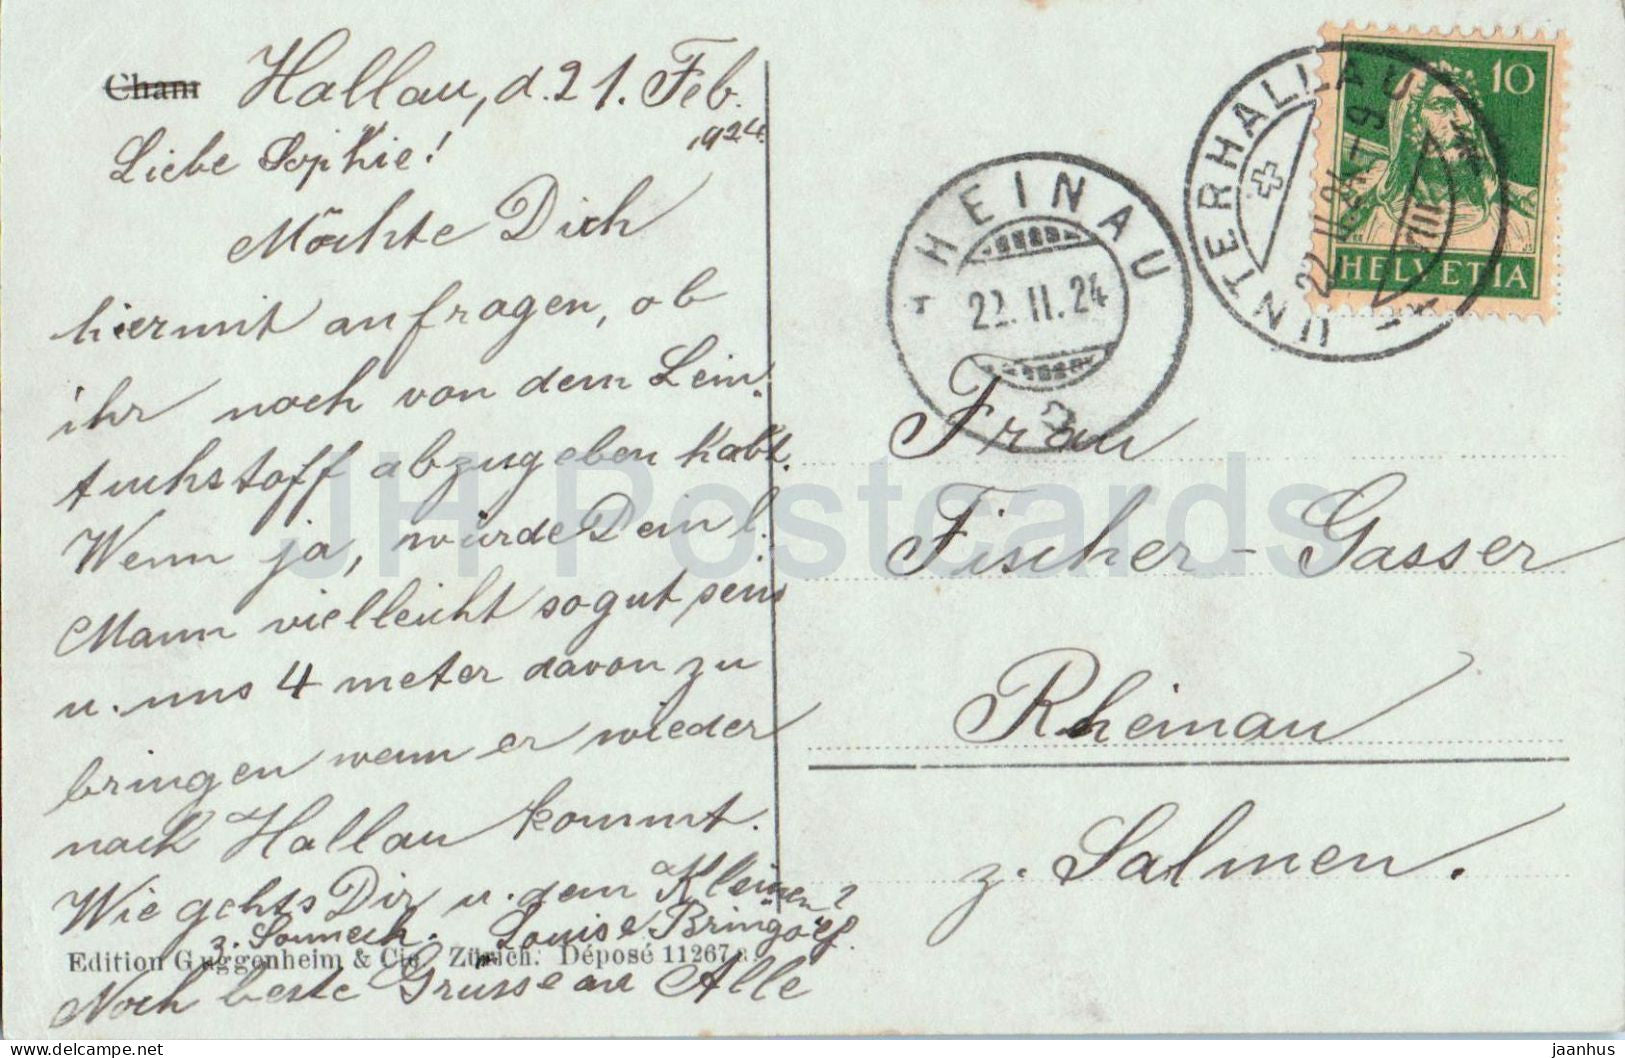 Cham Hallau, d. 21. Feb.
1924.
Liebe Sophie!
Möchte Dich
hiermit anfragen, ob
ihr noch von dem Lein,
tuchstoff abzugeben habt.
Wenn ja, würde Dein l.
Mann vielleicht so gut sein
u. uns 4 meter davon zu
bringen wenn er wieder
nach Hallau kommt.
Wie gehts Dir u. dem Kleinen?
z. Sonneck. Louise Bringolf.
Edition Guggenheim & Cie., Zürich. Déposé 11267a
Noch beste Grüsse an Alle
RHEINAU
22. II. 24
UNTERHALLAU
22. II. 24 - 9
VIII
10
HELVETIA
Frau
Fischer-Gasser
Rheinau
z. Salmen.
JH Postcards
jaanhus
delcampe.net